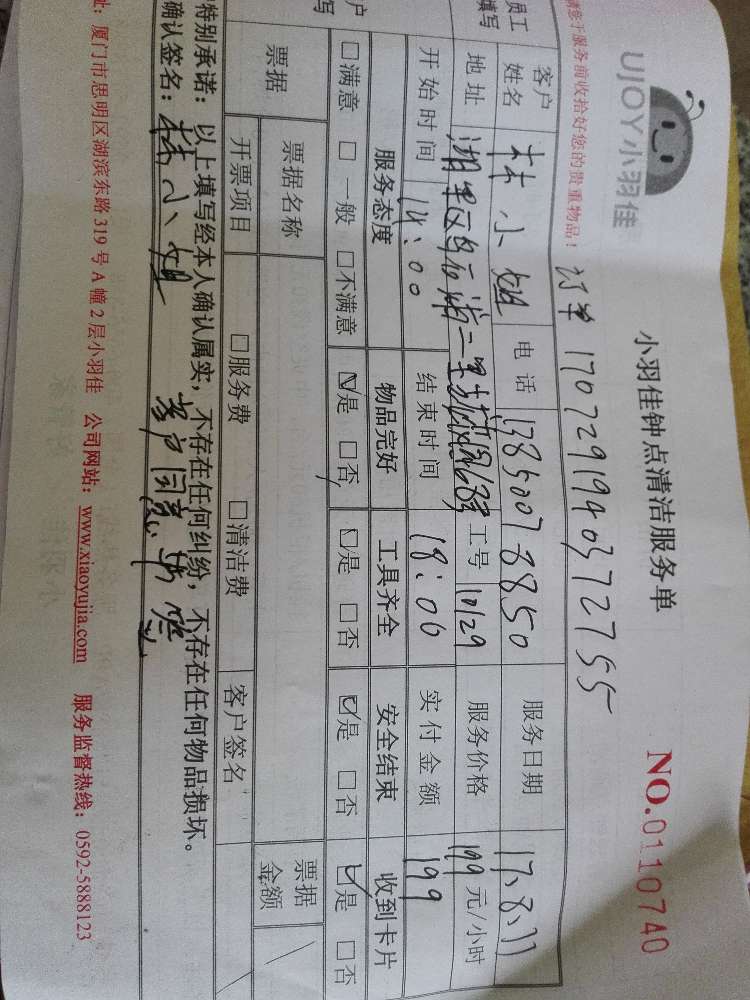 UJOY小羽佳
小羽佳钟点清洁服务单
NO.0110740
请您于服务前收拾好您的贵重物品！
订单 1707291940372755
员工
填写
客户姓名 林小姐 电话 13850078850 服务日期 17.8.11
地址 湖里区 二里 工号 10129 服务价格 199 元/小时
开始时间 14:00 结束时间 18:00 实付金额 199
户
写
服务态度 物品完好 工具齐全 安全结束 收到卡片
□满意 □一般 □不满意 ☑是 □否 ☑是 □否 ☑是 □否 ☑是 □否
票据 票据名称 票据金额
开票项目 □服务费 □清洁费 客户签名
特别承诺：以上填写经本人确认属实，不存在任何纠纷，不存在任何物品损坏。
确认签名：林小姐 客户同意
址：厦门市思明区湖滨东路319号A幢2层小羽佳 公司网站：www.xiaoyujia.com 服务监督热线：0592-5888123